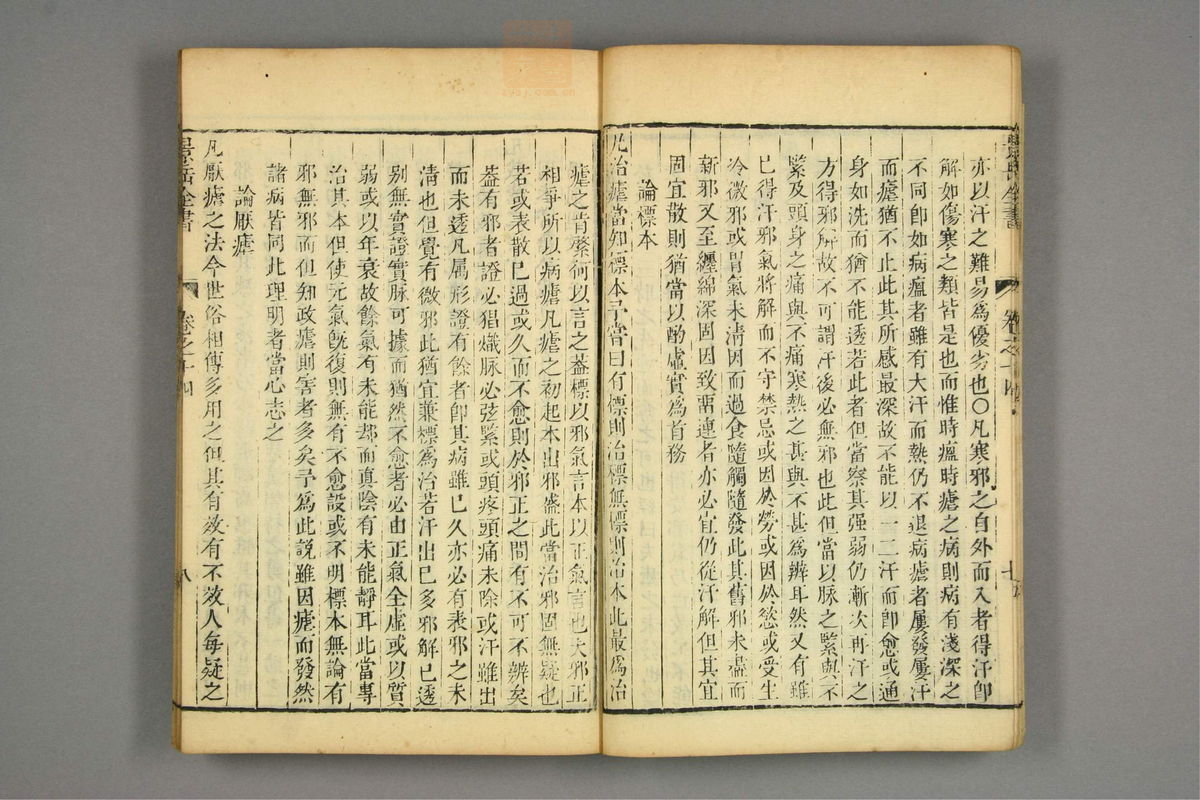 亦以汗之難易爲優劣也〇凡寒邪之自外而入者得汗卽
解如傷寒之類皆是也而惟時瘟時瘧之病則病有淺深之
不同卽如病瘟者雖有大汗而熱仍不退病瘧者屢發屢汗
而瘧猶不止此其所感最深故不能以一二汗而卽愈或通
身如洗而猶不能透若此者但當察其强弱仍漸次再汗之
方得邪解故不可謂汗後必無邪也此但當以脉之緊與不
緊及頭身之痛與不痛寒熱之甚與不甚爲辨耳然又有雖
已得汗邪氣將解而不守禁忌或因於勞或因於慾或受生
冷微邪或胃氣未淸因而過食隨觸隨發此其舊邪未盡而
新邪又至纏綿深固因致留連者亦必宜仍從汗解但其宜
固宜散則猶當以酌虛實爲首務
論標本
凡治瘧當知標本予嘗曰有標則治標無標則治本此最爲治
景岳全書
卷之十四
七
瘧之肯綮何以言之葢標以邪氣言本以正氣言也夫邪正
相爭所以病瘧凡瘧之初起本出邪盛此當治邪固無疑也
若或表散已過或久而不愈則於邪正之間有不可不辨矣
葢有邪者證必猖熾脉必弦緊或頭疼頭痛未除或汗雖出
而未透凡属形證有餘者卽其病雖已久亦必有表邪之未
淸也但覺有微邪此猶宜兼標爲治若汗出已多邪解已透
别無實證實脉可據而猶然不愈者必由正氣全虛或以質
弱或以年衰故餘氣有未能却而真陰有未能靜耳此當專
治其本但使元氣旣復則無有不愈設或不明標本無論有
邪無邪而但知攻瘧則害者多矣予爲此説雖因瘧而發然
諸病皆同此理明者當心志之
論厭瘧
凡厭瘧之法今世俗相傳多用之但其有效有不效人每疑之
景岳全書
卷之十四
八
zysj.com.cn